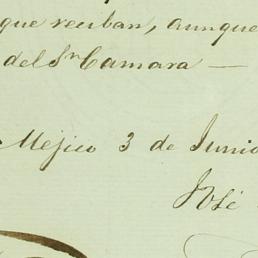 que reciban, aunque
del Sr Camara —
Méjico 3 de Junio
José